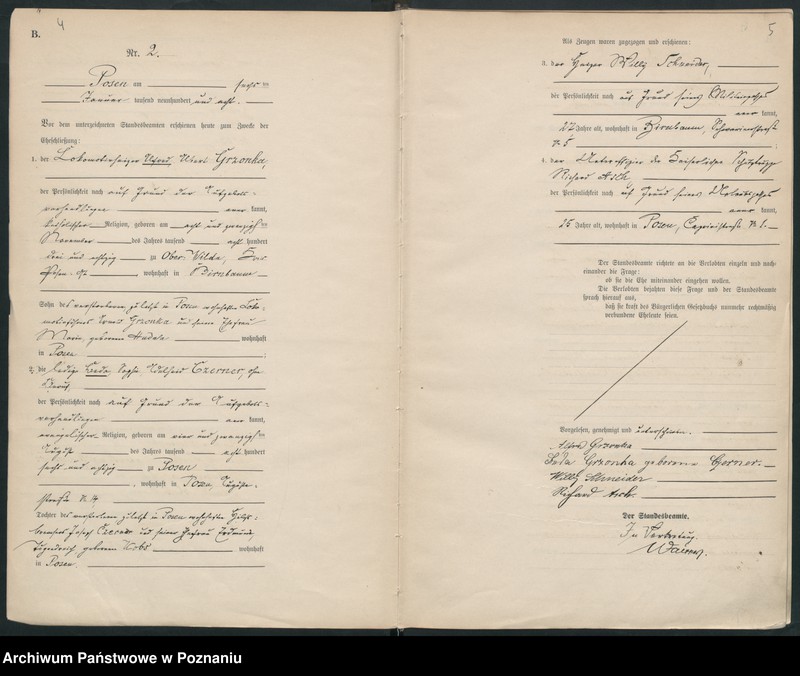 4
B.
Nr. 2.
Posen am sechsten
Januar tausend neunhundert und acht.
Vor dem unterzeichneten Standesbeamten erschienen heute zum Zwecke der
Eheschließung:
1. der Lokomotivheizer Alfred, Albert Grzonka,
der Persönlichkeit nach auf Grund der Aufgebots-
verhandlungen kannt,
katholischer Religion, geboren am acht und zwanzigsten
November des Jahres tausend acht hundert
drei und achtzig zu Ober Wilda, Kreis
Posen-Ost wohnhaft in Birnbaum
Sohn des verstorbenen, zuletzt in Posen wohnhaften Loko-
motivführers Grzonka und seiner Ehefrau
Marie, geborenen wohnhaft
in Posen ;
2. die ledige Leda, Sophie, Czerner, ohne
Beruf,
der Persönlichkeit nach auf Grund der Aufgebots-
verhandlungen kannt,
evangelischer Religion, geboren am vier und zwanzigsten
August des Jahres tausend acht hundert
sechs und achtzig zu Posen
, wohnhaft in Posen,
straße N.
Tochter des verstorbenen, zuletzt in Posen wohnhaften
Joseph Czerner und seiner Ehefrau
geborenen wohnhaft
in Posen.
5
Als Zeugen waren zugezogen und erschienen:
3. der Heizer Willy Schneider,
der Persönlichkeit nach auf Grund seines
kannt,
27 Jahre alt, wohnhaft in Birnbaum,
N. 5 ;
4. der Unteroffizier der Kaiserlichen Schutztruppe
Richard
der Persönlichkeit nach auf Grund seines
kannt,
25 Jahre alt, wohnhaft in Posen, Caprivistraße N. 1.
Der Standesbeamte richtete an die Verlobten einzeln und nach-
einander die Frage:
ob sie die Ehe miteinander eingehen wollen.
Die Verlobten bejahten diese Frage und der Standesbeamte
sprach hierauf aus,
daß sie kraft des Bürgerlichen Gesetzbuchs nunmehr rechtmäßig
verbundene Eheleute seien.
Vorgelesen, genehmigt und unterschrieben.
Alfred Grzonka
Leda Grzonka geborene Czerner.
Willy Schneider
Richard
Der Standesbeamte.
In Vertretung.
Archiwum Państwowe w Poznaniu